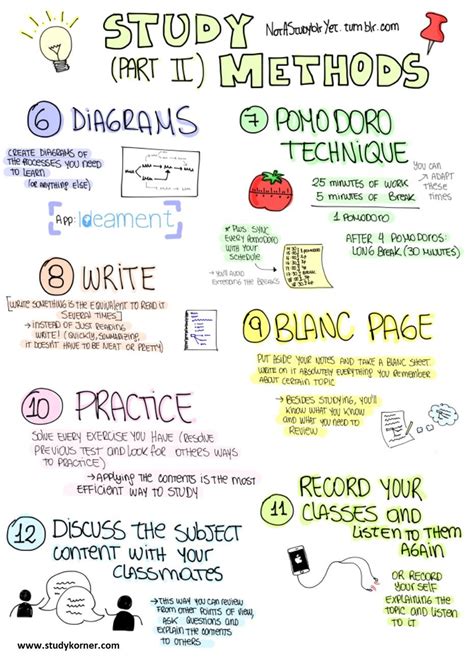 STUDY
NotAStudyblrYet.tumblr.com
(PART II) METHODS
6 DIAGRAMS
CREATE DIAGRAMS OF
THE PROCESSES YOU NEED
TO LEARN
(or anything else)
App: Ideament
7 POMODORO
TECHNIQUE
25 MINUTES OF WORK
5 MINUTES OF BREAK
1 POMODORO
YOU CAN
ADAPT
THESE
TIMES
AFTER 4 POMODOROS:
LONG BREAK (30 MINUTES)
* Plus: SYNC
EVERY POMODORO
WITH YOUR
SCHEDULE
→ YOU'LL AVOID
EXTENDING THE BREAKS
8 WRITE
[WRITE SOMETHING IS THE EQUIVALENT TO READ IT
SEVERAL TIMES]
→ INSTEAD OF JUST READING
WRITE! (QUICKLY, SUMMARIZING,
IT DOESN'T HAVE TO BE NEAT OR PRETTY)
9 BLANC PAGE
PUT ASIDE YOUR NOTES AND TAKE A BLANC SHEET.
WRITE ON IT ABSOLUTELY EVERYTHING YOU REMEMBER
ABOUT CERTAIN TOPIC
→ BESIDES STUDYING, YOU'LL
KNOW WHAT YOU KNOW
AND WHAT YOU NEED TO
REVIEW
10 PRACTICE
SOLVE EVERY EXERCISE YOU HAVE (RESOLVE
PREVIOUS TEST AND LOOK FOR OTHERS WAYS
TO PRACTICE)
→ APPLYING THE CONTENTS IS THE MOST
EFFICIENT WAY TO STUDY
11 RECORD YOUR
CLASSES AND
LISTEN TO THEM
AGAIN
OR RECORD
YOUR SELF
EXPLAINING THE
TOPIC AND LISTEN
TO IT
12 DISCUSS THE SUBJECT
CONTENT WITH YOUR
CLASSMATES
→ THIS WAY YOU CAN REVIEW
FROM OTHER POINTS OF VIEW,
ASK QUESTIONS AND
EXPLAIN THE CONTENTS
TO OTHERS
www.studykorner.com